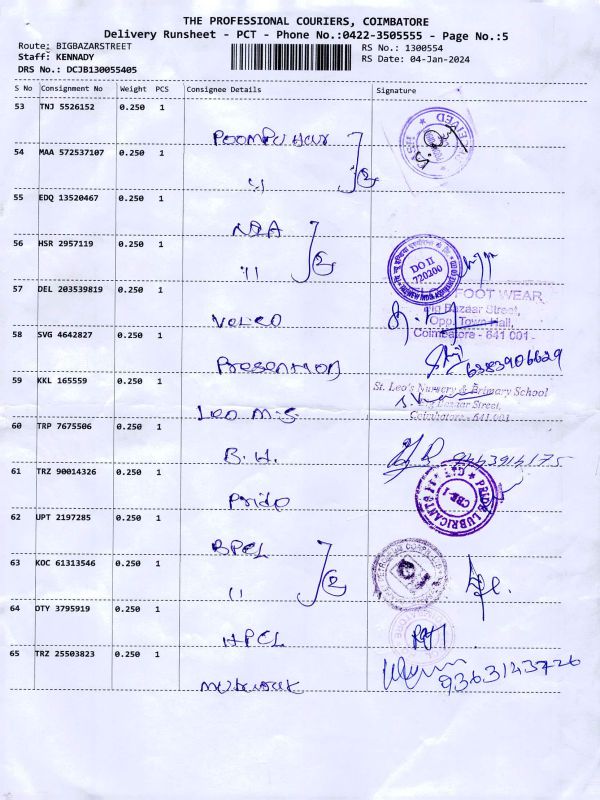 THE PROFESSIONAL COURIERS, COIMBATORE
Delivery Runsheet - PCT - Phone No.:0422-3505555 - Page No.:5
Route: BIGBAZARSTREET
RS No.: 1300554
Staff: KENNADY
RS Date: 04-Jan-2024
DRS No.: DCJB130055405
S No Consignment No Weight PCS Consignee Details Signature
53 TNJ 5526152 0.250 1
54 MAA 572537107 0.250 1
55 EDQ 13520467 0.250 1
NIA
56 HSR 2957119 0.250 1
DO II
720200
57 DEL 203539819 0.250 1
FOOT WEAR
Big Bazaar Street,
Opp. Town Hall,
Coimbatore - 641 001
58 SVG 4642827 0.250 1
Presention
6383906629
59 KKL 165559 0.250 1
St. Leo's Nursery & Primary School
Bazaar Street,
Coimbatore - 641 001
Leo M.S
60 TRP 7675506 0.250 1
B.H. 9443914175
61 TRZ 90014326 0.250 1
PRIDE LUBRICANTS
CBE-1
Pride
62 UPT 2197285 0.250 1
BPCL
63 KOC 61313546 0.250 1
64 OTY 3795919 0.250 1
HPCL
65 TRZ 25503823 0.250 1
9363143726